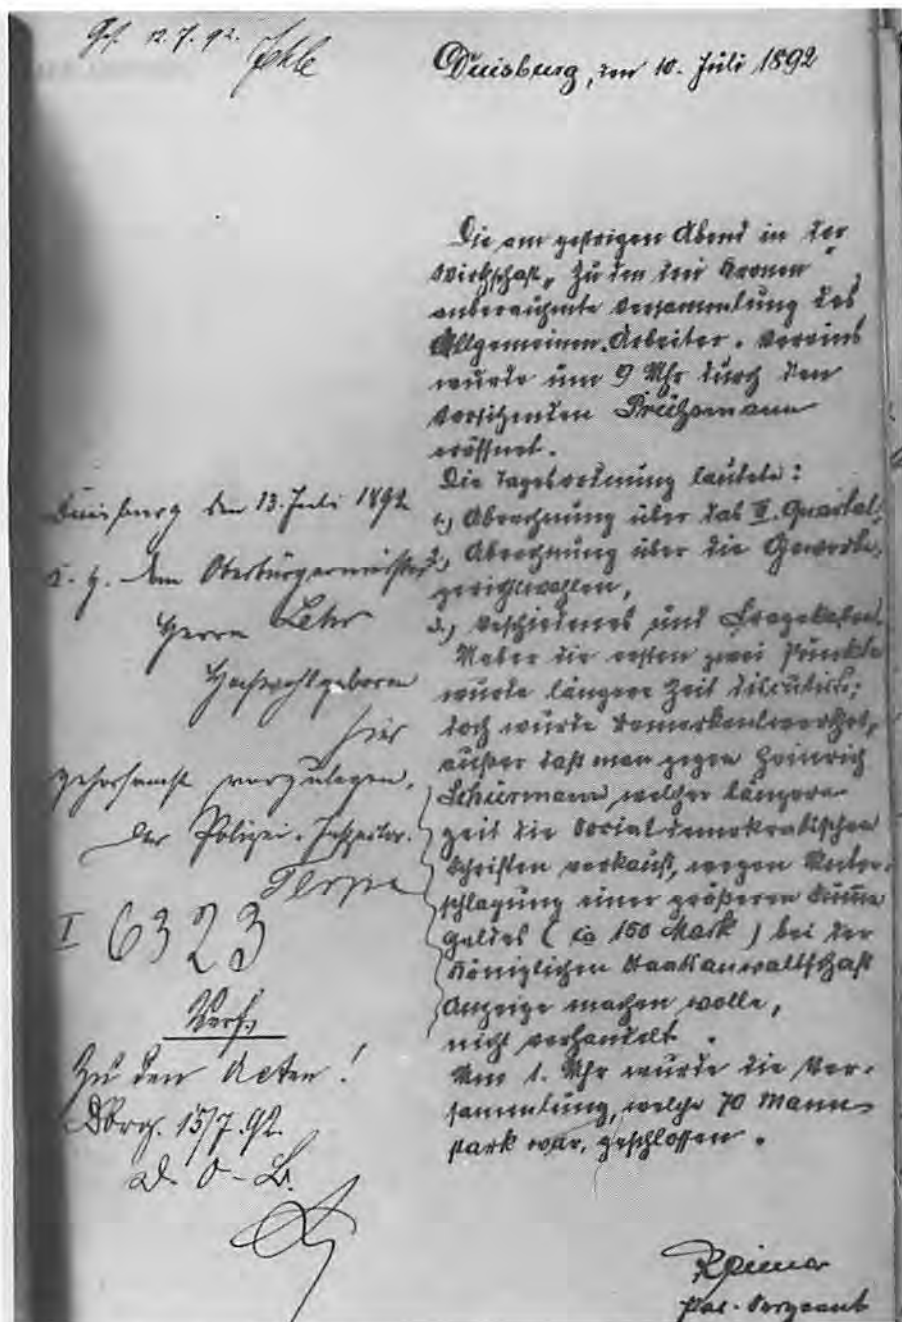 Ges. 12.7.92.
Duisburg, den 10. Juli 1892
Die am gestrigen Abend in der
Wirthschaft „Zu den drei Kronen"
anberaumte Versammlung des
Allgemeinen Arbeiter-Vereins
wurde um 9 Uhr durch den
Vorsitzenden
eröffnet.
Die Tagesordnung lautete:
1.) Abrechnung über das II. Quartal,
2.) Abrechnung über die Gewerbe-
gerichtwahlen,
3.) Verschiedenes und Fragekasten.
Ueber die ersten zwei Punkte
wurde längere Zeit discutirt;
doch wurde Bemerkenswerthes,
außer daß man gegen Heinrich
Schürmann, welcher längere
Zeit die Social-demokratischen
Schriften verkauft, wegen Unter-
schlagung einer größeren Summe
Geldes (ca 150 Mark) bei der
Königlichen Staatsanwaltschaft
Anzeige machen wolle,
nicht verhandelt.
Um 1. Uhr wurde die Ver-
sammlung, welche 70 Mann
stark war, geschlossen.
Pol-Sergeant
Duisburg den 13. Juli 1892
dem Oberbürgermeister
Herrn Lehr
Hochwohlgeboren
hier
gehorsamst vorzulegen.
Der Polizei-Inspektor.
I 6323
Verf.
Zu den Acten!
Dbrg. 15/7.92.
D. O-B.